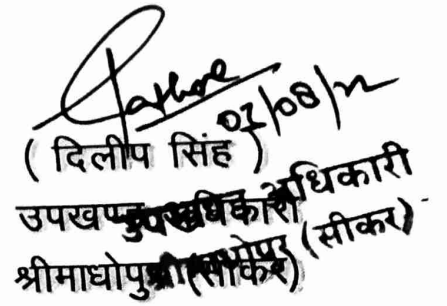 01/08/22
( दिलीप सिंह )
उपखण्ड अधिकारी
श्रीमाधोपुर (सीकर)